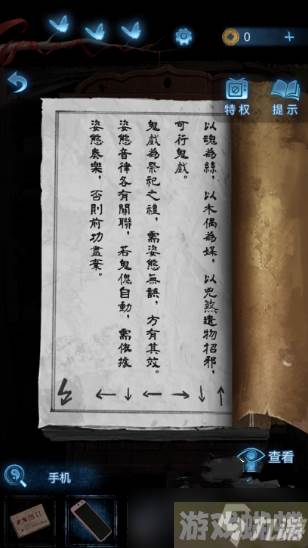 0
特权
提示
以魂為絲，以木偶為媒，以兇煞遺物招邪，
可行鬼戲。
鬼戲為祭祀之禮，需姿態無誤，方有其效。
姿態音律各有關聯，若鬼傀自動，需依據
姿態奏樂，否則前功盡棄。
查看
手机
九游